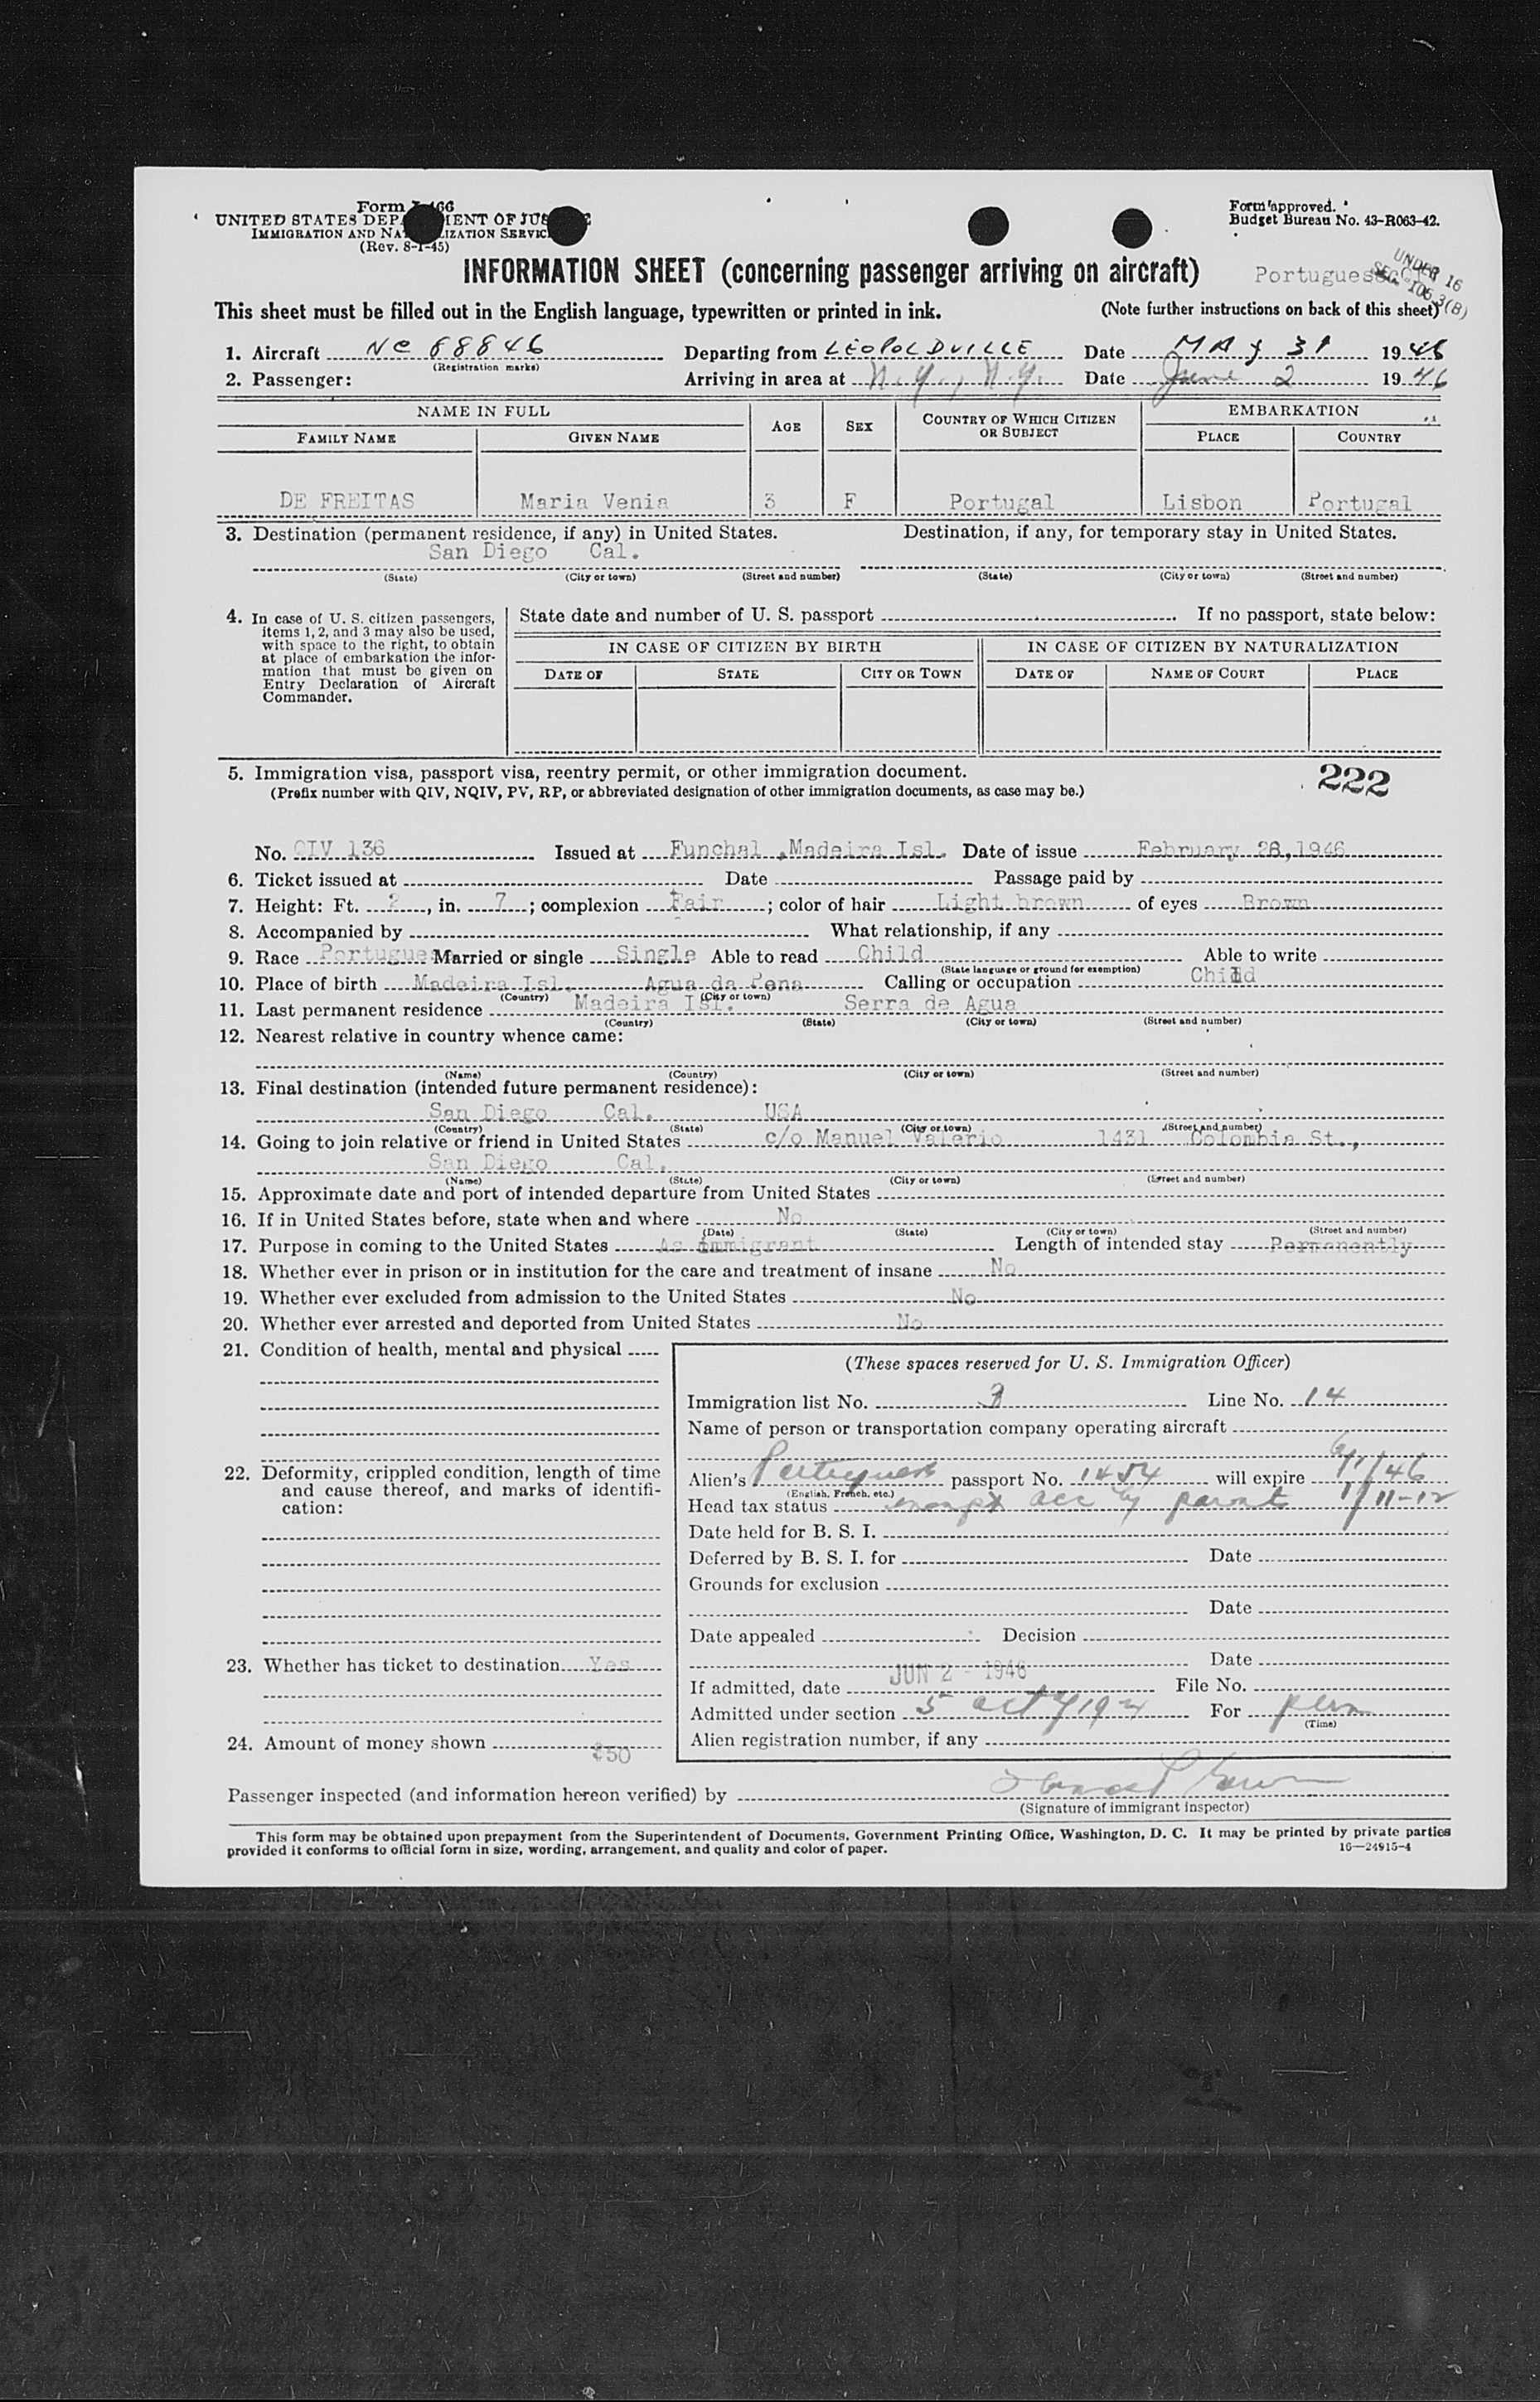 Form I-466
UNITED STATES DEPARTMENT OF JUSTICE
IMMIGRATION AND NATURALIZATION SERVICE
(Rev. 8-1-45)
Form approved.
Budget Bureau No. 43-R063-42.
INFORMATION SHEET (concerning passenger arriving on aircraft)
Portuguese
UNDER 16
SEC. 105.3(B)
This sheet must be filled out in the English language, typewritten or printed in ink. (Note further instructions on back of this sheet)
1. Aircraft NC 88846 Departing from LEOPOLDVILLE Date MAy 31 1946
(Registration marks)
2. Passenger: Arriving in area at N.Y., N.Y. Date June 2 1946
NAME IN FULL AGE SEX COUNTRY OF WHICH CITIZEN OR SUBJECT EMBARKATION
FAMILY NAME GIVEN NAME PLACE COUNTRY
DE FREITAS Maria Venia 3 F Portugal Lisbon Portugal
3. Destination (permanent residence, if any) in United States. Destination, if any, for temporary stay in United States.
San Diego Cal.
(State) (City or town) (Street and number) (State) (City or town) (Street and number)
4. In case of U. S. citizen passengers, items 1, 2, and 3 may also be used, with space to the right, to obtain at place of embarkation the information that must be given on Entry Declaration of Aircraft Commander.
State date and number of U. S. passport . If no passport, state below:
IN CASE OF CITIZEN BY BIRTH IN CASE OF CITIZEN BY NATURALIZATION
DATE OF STATE CITY OR TOWN DATE OF NAME OF COURT PLACE
5. Immigration visa, passport visa, reentry permit, or other immigration document.
(Prefix number with QIV, NQIV, PV, RP, or abbreviated designation of other immigration documents, as case may be.)
222
No. QIV 136 Issued at Funchal ,Madeira Isl. Date of issue February 28,1946
6. Ticket issued at Date Passage paid by
7. Height: Ft. 2, in. 7; complexion Fair; color of hair Light brown of eyes Brown
8. Accompanied by What relationship, if any
9. Race Portuguese Married or single Single Able to read Child Able to write
(State language or ground for exemption)
10. Place of birth Madeira Isl. Agua da Pena Calling or occupation Child
(Country) (City or town)
11. Last permanent residence Madeira Isl. Serra de Agua
(Country) (State) (City or town) (Street and number)
12. Nearest relative in country whence came:
(Name) (Country) (City or town) (Street and number)
13. Final destination (intended future permanent residence):
San Diego Cal. USA
(Country) (State) (City or town) (Street and number)
14. Going to join relative or friend in United States c/o Manuel Valerio 1431 Colombia St.,
San Diego Cal.
(Name) (State) (City or town) (Street and number)
15. Approximate date and port of intended departure from United States
16. If in United States before, state when and where No
(Date) (State) (City or town) (Street and number)
17. Purpose in coming to the United States As immigrant Length of intended stay Permanently
18. Whether ever in prison or in institution for the care and treatment of insane No
19. Whether ever excluded from admission to the United States No
20. Whether ever arrested and deported from United States No
21. Condition of health, mental and physical
22. Deformity, crippled condition, length of time and cause thereof, and marks of identification:
23. Whether has ticket to destination Yes
24. Amount of money shown $50
(These spaces reserved for U. S. Immigration Officer)
Immigration list No. 3 Line No. 14
Name of person or transportation company operating aircraft
Alien's Portuguese passport No. 1454 will expire
(English, French, etc.)
Head tax status exempt acc by parent 11-12
Date held for B. S. I.
Deferred by B. S. I. for Date
Grounds for exclusion
Date
Date appealed Decision
Date
If admitted, date JUN 2 - 1946 File No.
Admitted under section 5 act of 1924 For perm
(Time)
Alien registration number, if any
Passenger inspected (and information hereon verified) by
(Signature of immigrant inspector)
This form may be obtained upon prepayment from the Superintendent of Documents, Government Printing Office, Washington, D. C. It may be printed by private parties
provided it conforms to official form in size, wording, arrangement, and quality and color of paper. 16—24915-4